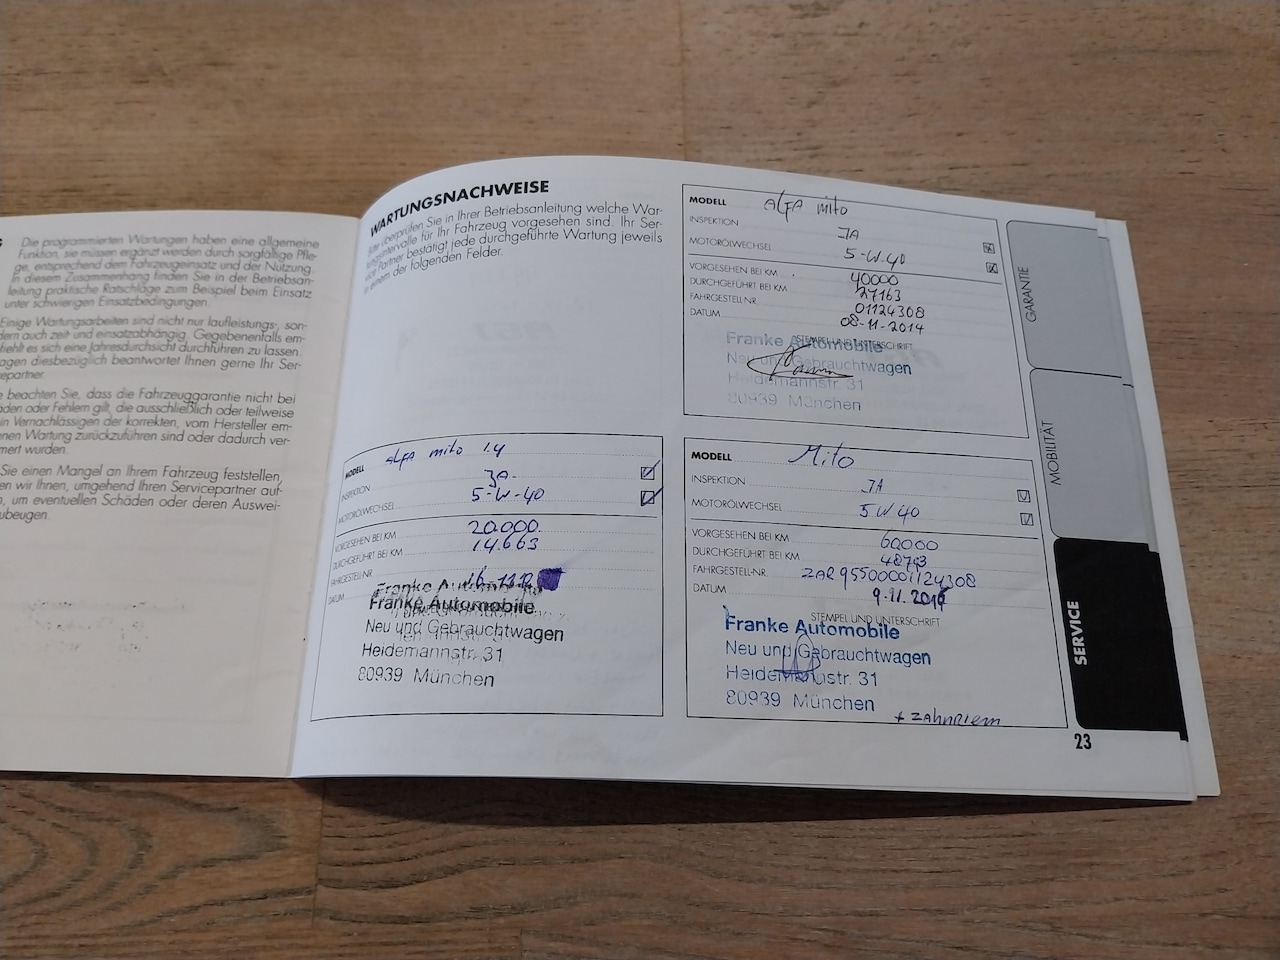 Die programmierten Wartungen haben eine allgemeine
Funktion, sie müssen ergänzt werden durch sorgfältige Pfle-
ge, entsprechend dem Fahrzeugeinsatz und der Nutzung.
In diesem Zusammenhang finden Sie in der Betriebsan-
leitung praktische Ratschläge zum Beispiel beim Einsatz
unter schwierigen Einsatzbedingungen.
Einige Wartungsarbeiten sind nicht nur laufleistungs-, son-
dern auch zeit- und einsatzabhängig. Gegebenenfalls em-
fiehlt es sich eine Jahresdurchsicht durchführen zu lassen.
agen diesbezüglich beantwortet Ihnen gerne Ihr Ser-
epartner.
e beachten Sie, dass die Fahrzeuggarantie nicht bei
äden oder Fehlern gilt, die ausschließlich oder teilweise
in Vernachlässigen der korrekten, vom Hersteller em-
nen Wartung zurückzuführen sind oder dadurch ver-
mert wurden.
Sie einen Mangel an Ihrem Fahrzeug feststellen,
en wir Ihnen, umgehend Ihren Servicepartner auf-
n, um eventuellen Schäden oder deren Auswei-
ubeugen.
WARTUNGSNACHWEISE
Bitte überprüfen Sie in Ihrer Betriebsanleitung welche War-
tungsintervalle für Ihr Fahrzeug vorgesehen sind. Ihr Ser-
vice Partner bestätigt jede durchgeführte Wartung jeweils
in einem der folgenden Felder.
MODELL Alfa mito 1.4
INSPEKTION JA-
MOTORÖLWECHSEL 5-W-40
VORGESEHEN BEI KM 20.000.
DURCHGEFÜHRT BEI KM 14.663
FAHRGESTELL-NR.
DATUM 16-11.12
Franke Automobile
Neu und Gebrauchtwagen
Heidemannstr. 31
80939 München
MODELL Alfa mito
INSPEKTION JA
MOTORÖLWECHSEL 5-W.40
VORGESEHEN BEI KM 40000
DURCHGEFÜHRT BEI KM 27163
FAHRGESTELL-NR. 01124308
DATUM 08-11-2014
STEMPEL UND UNTERSCHRIFT
Franke Automobile
Neu und Gebrauchtwagen
Heidemannstr. 31
80939 München
MODELL Mito
INSPEKTION JA
MOTORÖLWECHSEL 5W40
VORGESEHEN BEI KM 60000
DURCHGEFÜHRT BEI KM
FAHRGESTELL-NR. ZAR95500001124308
DATUM 9.11.2016
STEMPEL UND UNTERSCHRIFT
Franke Automobile
Neu und Gebrauchtwagen
Heidemannstr. 31
80939 München
+ Zahnriem
GARANTIE
MOBILITÄT
SERVICE
23